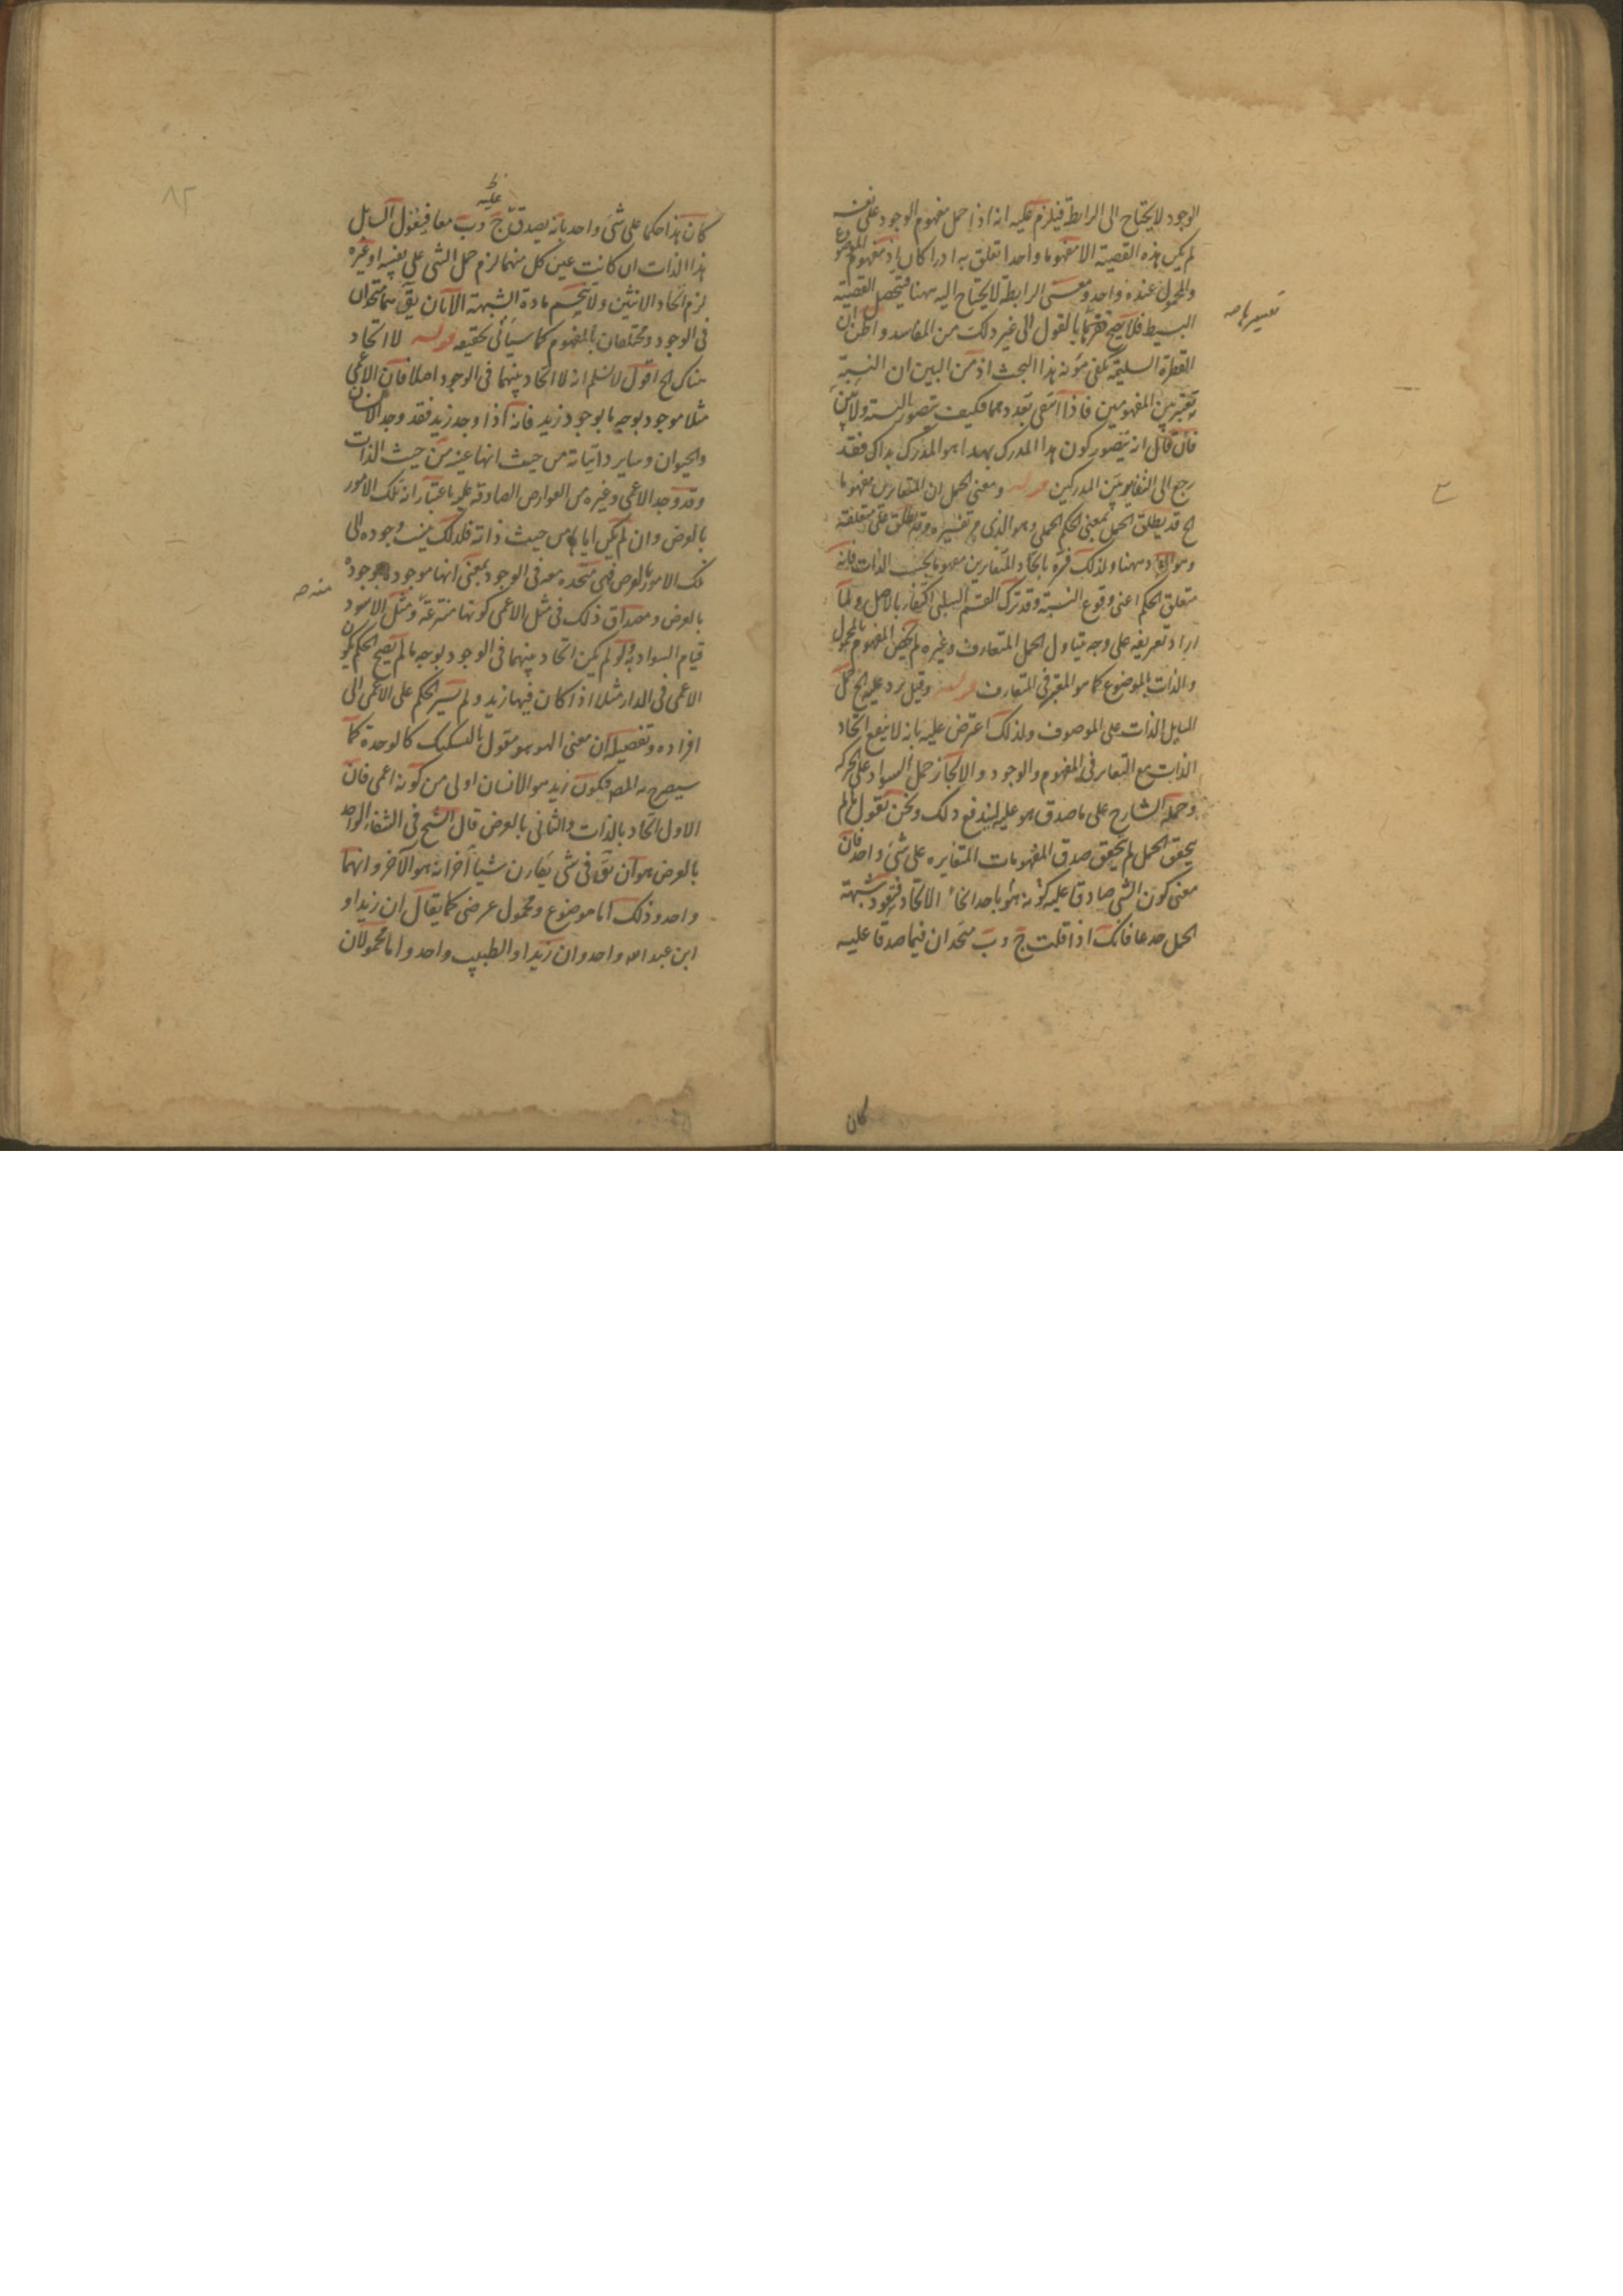 الوجود لا يحتاج الى الرابطة فيلزم عليه انه اذا حمل مفهوم الوجود على نفسه
لم يكن هذه القضية الا مفهوما واحدا تعلق به ادراكان اذ مفهوم الموضوع
والمحمول عنده واحد ومعنى الرابطة لا يحتاج اليه ههنا فيحصل القضية
البسيط فلا يصح بالقول الى غير ذلك من المفاسد واظن ان
الفطرة السليمة تكفى مؤنة هذا البحث اذ من البين ان النسبة
تعتبر بين المفهومين فاذا انتفى تعددهما فكيف يتصور النسبة ولئن
فان قال انه يتصور كون هذا المدرك بهذا هو المدرك بذاك فقد
رجع الى التغاير بين المدركين قوله ومعنى الحمل ان المتغايرين مفهوما
الخ قد يطلق الحمل بمعنى الحكم الحملى وهو الذى مر تفسيره وقد يطلق على متعلقه
وهو المراد ههنا ولذلك فسره باتحاد المتغايرين مفهوما بحسب الذات فانه
متعلق الحكم اعنى وقوع النسبة وقد ترك القسم السلبى اكتفاء بالاصل ولما
اراد تعريفه على وجه يتناول الحمل المتعارف وغيره لم يخص المفهوم بالمحمول
والذات بالموضوع كما هو المعتبر فى المتعارف قوله وقيل يرد عليه الخ حمل
السايل الذات على الموصوف ولذلك اعترض عليه بانه لا ينفع اتحاد
الذات مع التغاير فى المفهوم والوجود والا لجاز حمل السواد على الحركة
وحمله الشارح على ما صدق هو عليه ليندفع ذلك ونحن نقول ما لم
يتحقق الحمل لم يتحقق صدق المفهومات المتغايرة على شئ واحد فان
معنى كون الشئ صادقا عليه كونه هو باحد انحاء الاتحاد فتعود شبهة
الحمل جذعا فانك اذا قلت ج و ب متحدان فيما صدقا عليه
كان
كان هذا حكما على شئ واحد بانه يصدق عليه ج و ب معا فيقول السايل
هذا الذات ان كانت عين كل منهما لزم حمل الشئ على نفسه او غيره
لزم اتحاد الاثنين ولا ينحسم مادة الشبهة الا بان يق هما متحدان
فى الوجود ومختلفان بالمفهوم كما سيأتى تحقيقه قوله لا اتحاد
هناك الخ اقول لا نسلم انه لا اتحاد بينهما فى الوجود اصلا فان الاعمى
مثلا موجود بوجه ما بوجود زيد فانه اذا وجد زيد فقد وجد الانسان
والحيوان وساير ذاتياته من حيث انها عينه من حيث الذات
وقد وجد الاعمى وغيره من العوارض الصادقة عليه باعتبار انه تلك الامور
بالعرض وان لم يكن اياها من حيث ذاته فلذلك ينسب وجوده الى
تلك الامور بالعرض فهى متحدة معه فى الوجود بمعنى انها موجودة بوجوده
بالعرض ومصداق ذلك فى مثل الاعمى كونها منتزعة عنه ومثل الاسود
قيام السواد به ولو لم يكن اتحاد بينهما فى الوجود بوجه ما لم يصح الحكم بكون
الاعمى فى الدار مثلا اذا كان فيها زيد ولم يسر الحكم على الاعمى الى
افراده وتفصيله ان معنى الهو هو مقول بالتشكيك كالوحدة كما
سيصرح به المص فيكون زيد هو الانسان اولى من كونه اعمى فان
الاول اتحاد بالذات والثانى بالعرض قال الشيخ فى الشفاء الواحد
بالعرض هو ان يق فى شئ يقارن شيئا آخر انه هو الآخر وانهما
واحد وذلك اما موضوع ومحمول عرضى كما يقال ان زيدا و
ابن عبد الله واحد وان زيدا والطبيب واحد واما محمولان
منه
٨٢